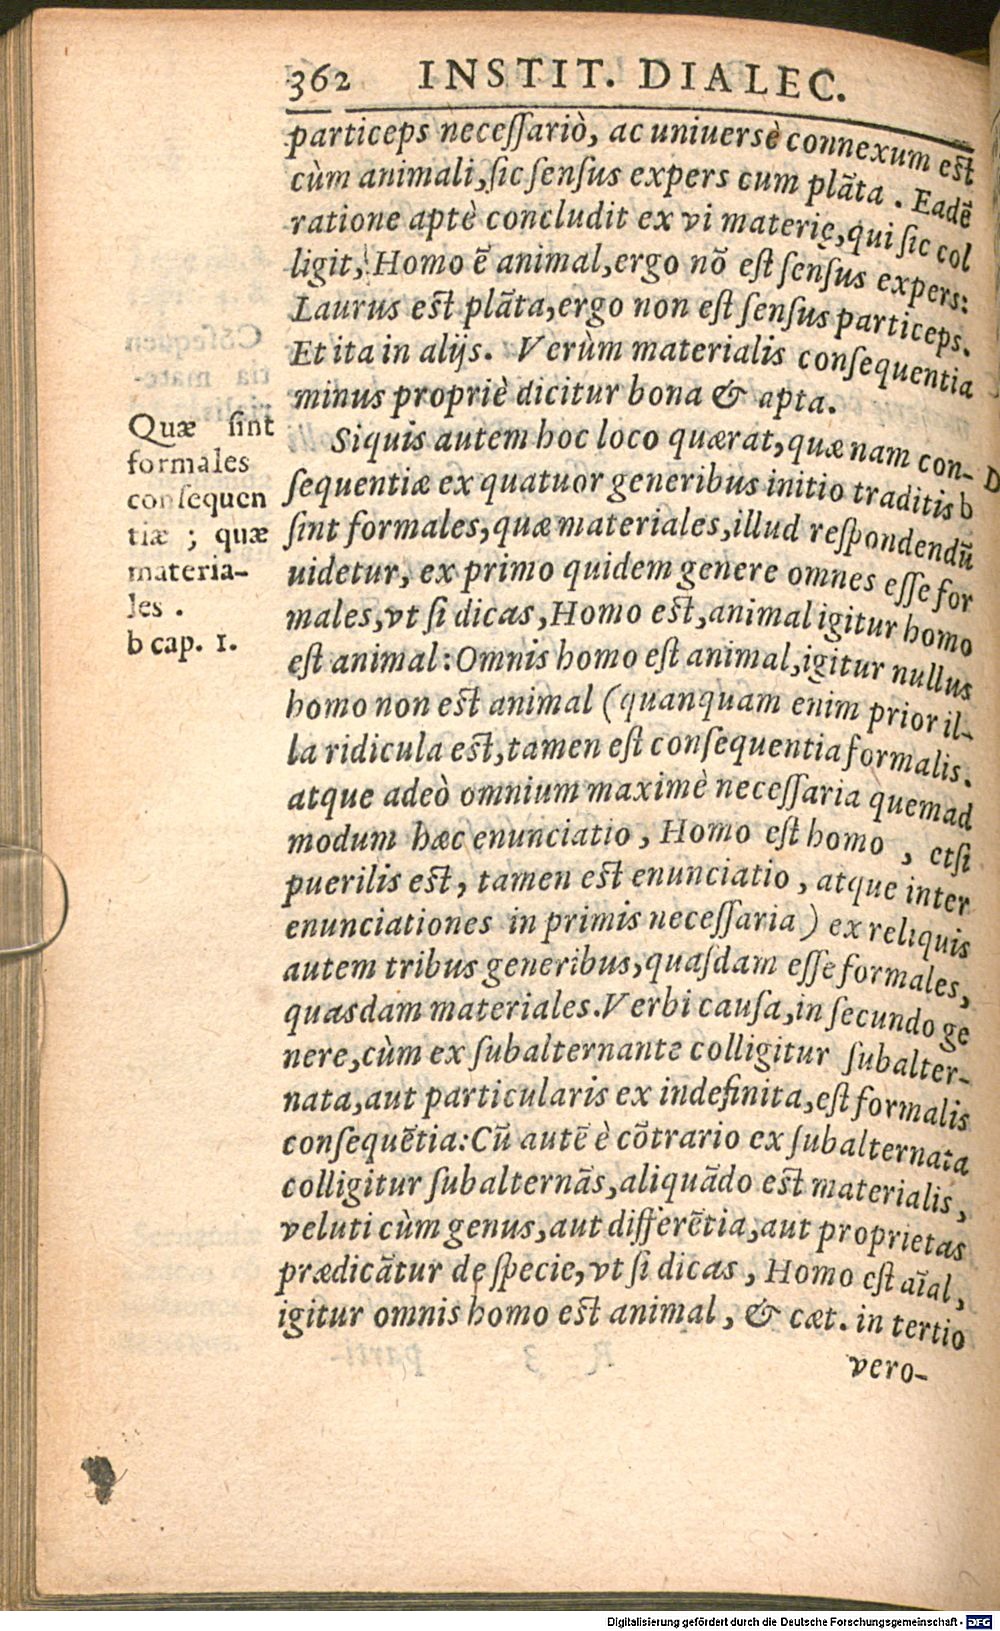 362 INSTIT. DIALEC.
particeps neceſſariò, ac uniuersè connexum est
cùm animali, ſic ſenſus expers cum plãta . Eadē
ratione aptè concludit ex vi materię, qui ſic col
ligit, Homo ē animal, ergo nõ eſt ſenſus expers:
Laurus est plãta, ergo non eſt ſenſus particeps.
Et ita in alijs. Verùm materialis conſequentia
minus propriè dicitur bona & apta.
Siquis autem hoc loco quærat, quæ nam con-
ſequentiæ ex quatuor generibus initio traditis b
ſint formales, quæ materiales, illud reſpondendũ
uidetur, ex primo quidem genere omnes eſſe for
males, vt ſi dicas, Homo est, animal igitur homo
eſt animal: Omnis homo eſt animal, igitur nullus
homo non est animal (quanquam enim prior il-
la ridicula est, tamen eſt conſequentia formalis.
atque adeò omnium maximè neceſſaria quemad
modum hæc enunciatio, Homo eſt homo , etſi
puerilis est, tamen est enunciatio, atque inter
enunciationes in primis neceſſaria) ex reliquis
autem tribus generibus, quaſdam eſſe formales,
quasdam materiales. Verbi cauſa, in ſecundo ge
nere, cùm ex ſubalternante colligitur ſubalter-
nata, aut particularis ex indefinita, eſt formalis
conſequētia: Cũ autē è cõtrario ex ſubalternata
colligitur ſubalternãs, aliquãdo est materialis,
veluti cùm genus, aut differētia, aut proprietas
prædicãtur de ſpecie, vt ſi dicas, Homo eſt aīal,
igitur omnis homo est animal, & cæt. in tertio
vero-
Quæ ſint
formales
conſequen
tiæ ; quæ
materia-
les .
b cap. 1.
D
Digitalisierung gefördert durch die Deutsche Forschungsgemeinschaft - DFG